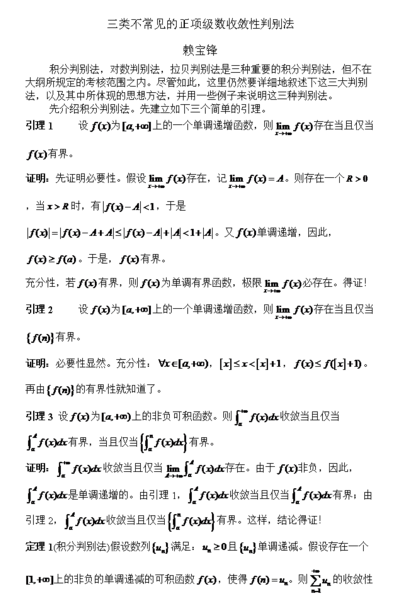 三类不常见的正项级数收敛性判别法
赖宝锋
积分判别法，对数判别法，拉贝判别法是三种重要的积分判别法，但不在
大纲所规定的考核范围之内。尽管如此，这里仍然要详细地叙述下这三大判别
法，以及其中所体现的思想方法，并用一些例子来说明这三种判别法。
先介绍积分判别法。先建立如下三个简单的引理。
引理 1 设 f(x)为[a,+∞]上的一个单调递增函数，则 lim x→+∞ f(x)存在当且仅当
f(x)有界。
证明：先证明必要性。假设 lim x→+∞ f(x)存在，记 lim x→+∞ f(x)=A。则存在一个 R>0
，当 x>R 时，有|f(x)-A|<1，于是
|f(x)|=|f(x)-A+A|≤|f(x)-A|+|A|<1+|A|。又 f(x)单调递增，因此，
f(x)≥f(a)。于是，f(x)有界。
充分性，若 f(x)有界，则 f(x)为单调有界函数，极限 lim x→+∞ f(x)必存在。得证！
引理 2 设 f(x)为[a,+∞]上的一个单调递增函数，则 lim x→+∞ f(x)存在当且仅当
{f(n)}有界。
证明：必要性显然。充分性：∀x∈[a,+∞)，[x]≤x<[x]+1，f(x)≤f([x]+1)。
再由{f(n)}的有界性就知道了。
引理 3 设 f(x)为[a,+∞)上的非负可积函数。则∫_a^{+∞} f(x)dx 收敛当且仅当
∫_a^A f(x)dx 有界，当且仅当{∫_a^n f(x)dx}有界。
证明：∫_a^{+∞} f(x)dx 收敛当且仅当 lim A→+∞ ∫_a^A f(x)dx 存在。由于 f(x)非负，因此，
∫_a^A f(x)dx 是单调递增的。由引理 1，∫_a^A f(x)dx 收敛当且仅当∫_a^A f(x)dx 有界；由
引理 2，∫_a^A f(x)dx 收敛当且仅当{∫_a^n f(x)dx}有界。这样，结论得证！
定理 1(积分判别法)假设数列{u_n}满足：u_n≥0且{u_n}单调递减。假设存在一个
[1,+∞]上的非负的单调递减的可积函数 f(x)，使得 f(n)=u_n。则 ∑_{n=1}^{+∞} u_n 的收敛性